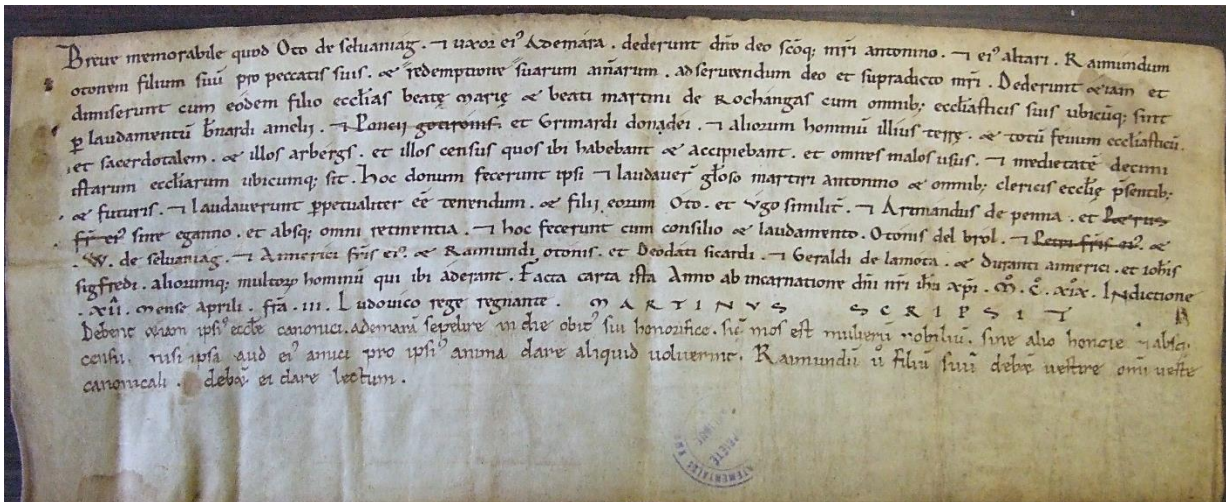 Breve memorabile quod Oto de selvaniag. ⁊ uxor ei᾽ Ademara. dederunt dn̄o deo sc̄oq; mr̄i antonino. ⁊ ei᾽ altari. Raimundum
otonem filium suū pro peccatis suis. & redemptione suarum am̄arum. ad serviendum deo et supradicto mr̄i. Dederunt &iam et
dimiserunt cum eodem filio eccl̄ias beatę marię & beati martini de Rochangas cum omnib; eccl̄iasticis suis ubicūq; sint
ꝑ laudamentū b̄nardi amelii. ⁊ Poncii et Grimardi donadei. ⁊ aliorum hominū illius terrę. & totū fevum eccl̄iasticū.
et sacerdotalem. & illos arbergs. et illos census quos ibi habebant & accipiebant. et omnes malos usus. ⁊ medietatē decimi
istarum eccl̄iarum ubicumq; sit. Hoc donum fecerunt ipsi ⁊ laudaver̄ gl̄oso martiri antonino & omnib; clericis eccl̄ię p̄sentib;
& futuris. ⁊ laudaverunt ꝑpetualiter eē tenendum. & filii eorum Oto. et Ugo similit̄. ⁊ Armandus de penna. et Petrus
fr̄ ei᾽ sine eganno. et absq; omni retinentia. ⁊ hoc fecerunt cum consilio & laudamento. Otonis del brol. ⁊ Petri fr̄is ei᾽. &
.W. de selvaniag. ⁊ Aimerici fr̄is ei᾽. & Raimundi otonis. et Deodati sicardi. ⁊ Geraldi de lamota. & Duranti aimerici. et ioh̄is
sigfredi. aliorumq; multoꝝ hominū qui ibi aderant. Facta carta ista Anno ab incarnatione dn̄i nr̄i ih̄u xp̄i. M̊. C̊. xi̊x. Indictione
.xii. mense aprili. fr̄a. iii. Ludovico rege regnante. MARTINUS SCRIPSIT.
Debent &iam ipsi᾽ eccl̄e canonici. ademarā sepelire in die obit᾽ sui honorifice. sic̄ mos est mulierū nobiliū. sine alio honore ⁊ absq;
censu. nisi ipsa aud ei᾽ amici pro ipsi᾽ anima dare aliquid voluerint. Raimundū ū filiū suū deb& vestire om̄i veste
canonicali. deb& ei dare lectum.